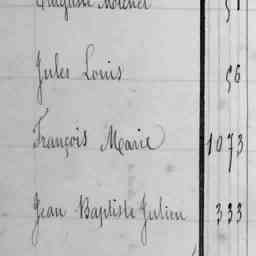 Jules Louis 56
François Marie 1073
Jean Baptiste Julien 333